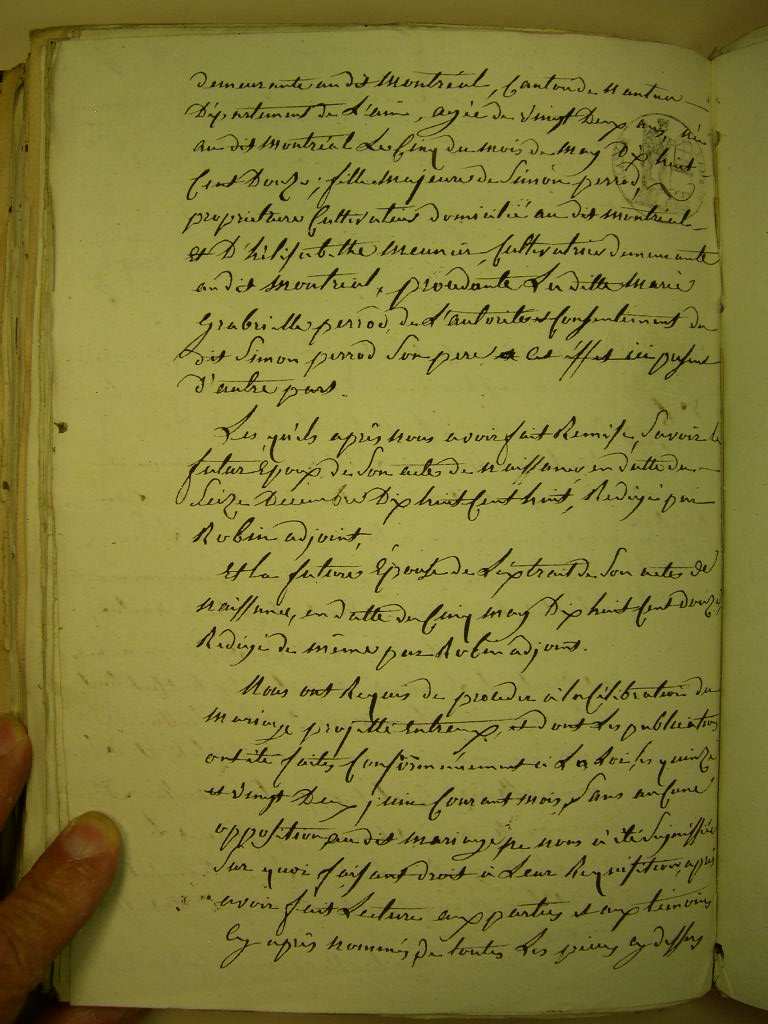 demeurante audit Montréal, Canton de Nantua
Département de L'ain, agée de vingt Deux ans, née
audit Montréal Le Cinq du mois de may Dix huit
Cent Douze; fille majeure de Simon perrod,
propriétaire Cultivateur domicilié audit Montréal
et D'hélisabethe meunier, Cultivatrice demeurante
audit Montréal, procédante La ditte Marie
Grabrielle perrod, de L'autorité et Consentement du
dit Simon perrod Son pere a cet éffet ici présent
D'autre part.
Les quils après nous avoir fait Remise, Savoir le
futur Epoux de Son actes de naissance en datte du
Seize Decembre Dix huit Cent huit, Redigé par
Robin adjoint,
et la future Épouse de L'extrait de Son actes de
naissance, en datte du Cinq may Dix huit Cent douze
Redigé de même par Robin adjoint.
Nous ont Requis de proceder à la Célébration du
Mariage projetté entreux, et dont Les publications
ont été faites Conformément à La Loi, les quinze
et vingt Deux juin Courant mois, Sans aucune
opposition audit mariage ne nous à été Signiffiée
Sur quoi faisant droit à Leur Requisition, après
avoir fait Lecture aux parties et aux témoins
Cy après nommés, de toutes Les pièces cy dessus